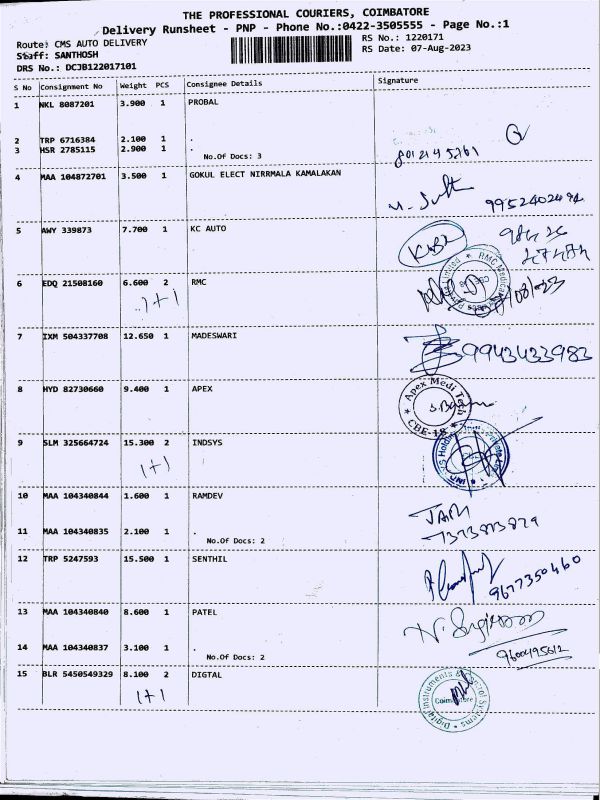 THE PROFESSIONAL COURIERS, COIMBATORE
Delivery Runsheet - PNP - Phone No.:0422-3505555 - Page No.:1
Route: CMS AUTO DELIVERY
RS No.: 1220171
Staff: SANTHOSH
RS Date: 07-Aug-2023
DRS No.: DCJB122017101
S No Consignment No Weight PCS Consignee Details Signature
1 NKL 8087201 3.900 1 PROBAL
2 TRP 6716384 2.100 1 .
3 HSR 2785115 2.900 1 .
No.Of Docs: 3
4 MAA 104872701 3.500 1 GOKUL ELECT NIRRMALA KAMALAKAN
9952402494
5 AWY 339873 7.700 1 KC AUTO
6 EDQ 21508160 6.600 2 RMC
1+1
7 IXM 504337708 12.650 1 MADESWARI
9943433983
8 HYD 82730660 9.400 1 APEX
Apex Medi Tech
CBE-18
9 SLM 325664724 15.300 2 INDSYS
1+1
10 MAA 104340844 1.600 1 RAMDEV
11 MAA 104340835 2.100 1 .
No.Of Docs: 2
12 TRP 5247593 15.500 1 SENTHIL
9677350460
13 MAA 104340840 8.600 1 PATEL
14 MAA 104340837 3.100 1 .
No.Of Docs: 2
9600495612
15 BLR 5450549329 8.100 2 DIGTAL
1+1
Digital Instruments & Control Systems